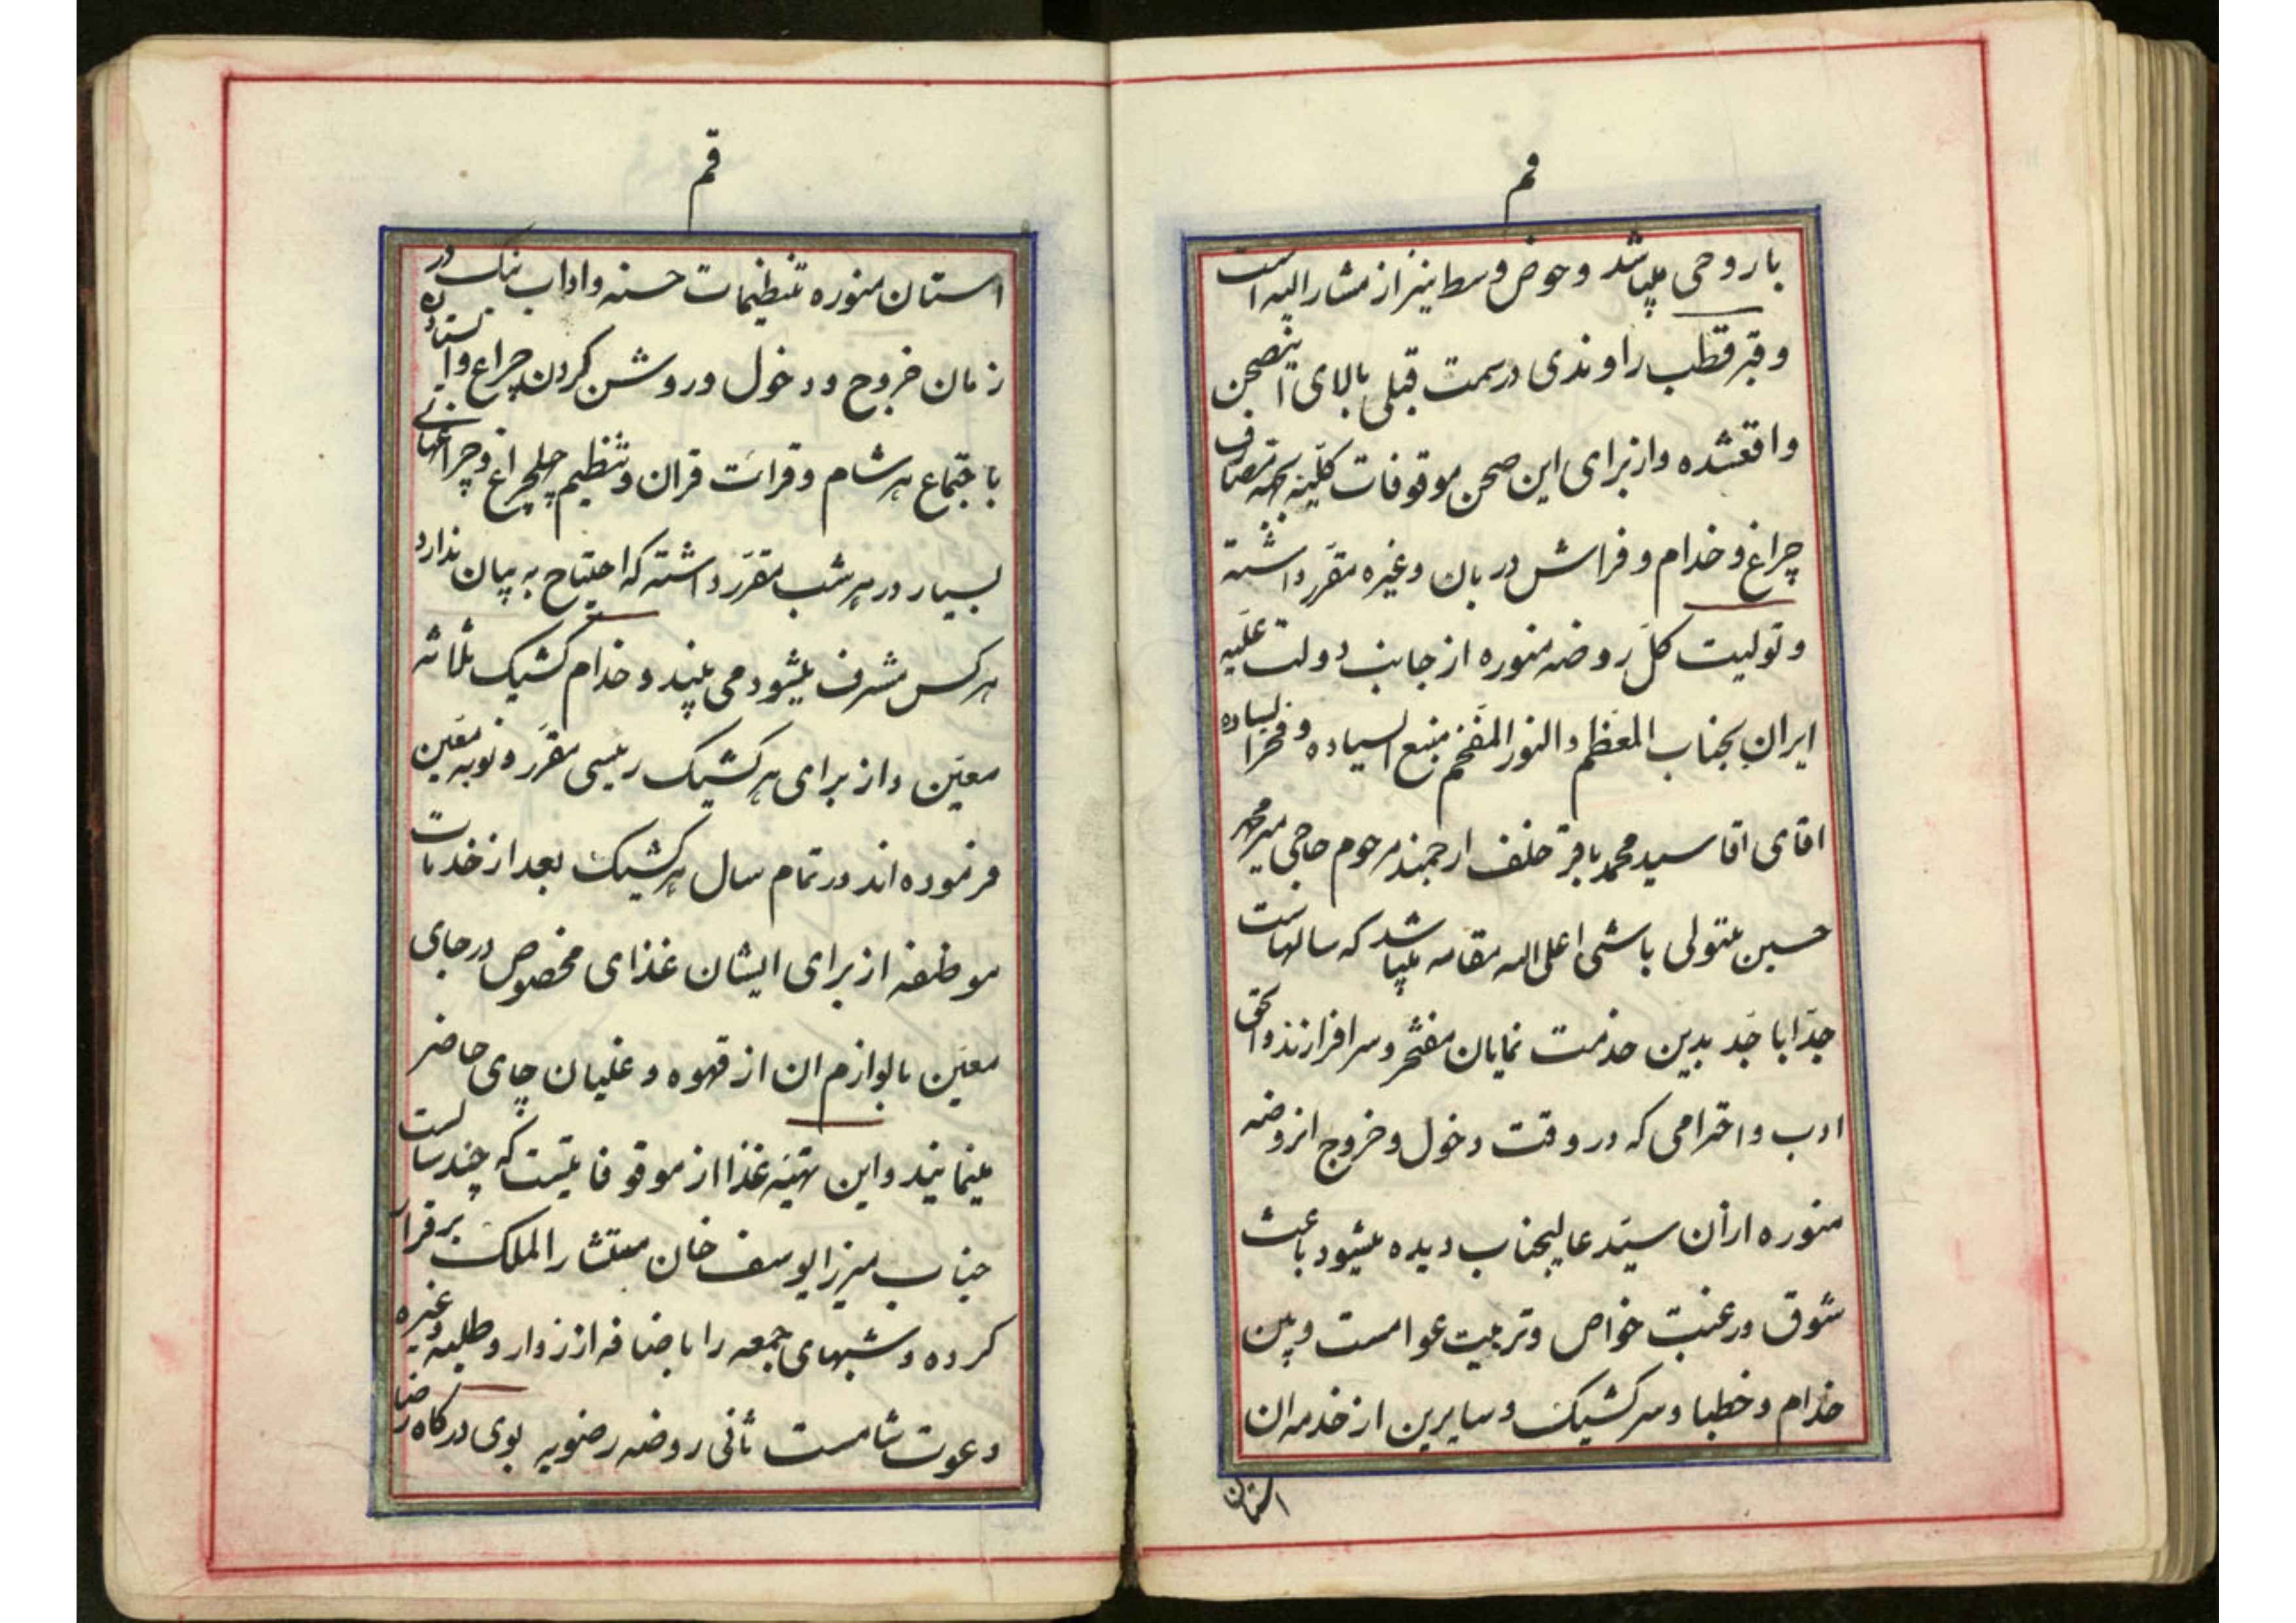 قم
باروحی میباشد و حوض وسط نیز از مشارالیه است
وقبر قطب راوندی در سمت قبلی بالای اینصحن
واقعشده و از برای این صحن موقوفات کلیه بجهة مصارف
چراغ و خدام و فراش دربان و غیره مقرر داشته
و تولیت کل روضه منوره از جانب دولت علیه
ایران بجناب المعظم و النور المفخم منبع السیاده و فخر السیاده
اقای اقا سید محمد باقر خلف ارجمند مرحوم حاجی میر محمد
حسین متولی باشی اعلی الله مقامه میباشد که سالهاست
جدا با جد بدین خدمت نمایان مفتخر و سرافرازند و الحق
ادب و احترامی که در وقت دخول و خروج از روضه
منوره از آن سید عالیجناب دیده میشود باعث
شوق و رغبت خواص و تربیت عوامست و بین
خدام و خطبا و سرکشیک و سایرین از خدمه ان
استان
قم
استان منوره تنظیمات حسنه و اداب نیک در
زمان خروج و دخول و روشن کردن چراغ و استادن
باجتماع هر شام و قرائت قران و تنظیم چلچراغ و چراغهای
بسیار در هر شب مقرر داشته که احتیاج به بیان ندارد
هر کس مشرف میشود می بیند و خدام کشیک ثلاثه
معین و از برای هر کشیک رئیسی مقرر و نوبه معین
فرموده اند در تمام سال هر کشیک بعد از خدمات
موظفه از برای ایشان غذای مخصوص در جای
معین با لوازم ان از قهوه و غلیان چای حاضر
مینمایند و این تهیه غذا از موقوفاتیست که چند سالست
جناب میرزا یوسف خان مستشار الملک برقرار
کرده و شبهای جمعه را باضافه از زوار و طلبه و غیره
دعوت شامست ثانی روضه رضویه بوی درکاه رضا